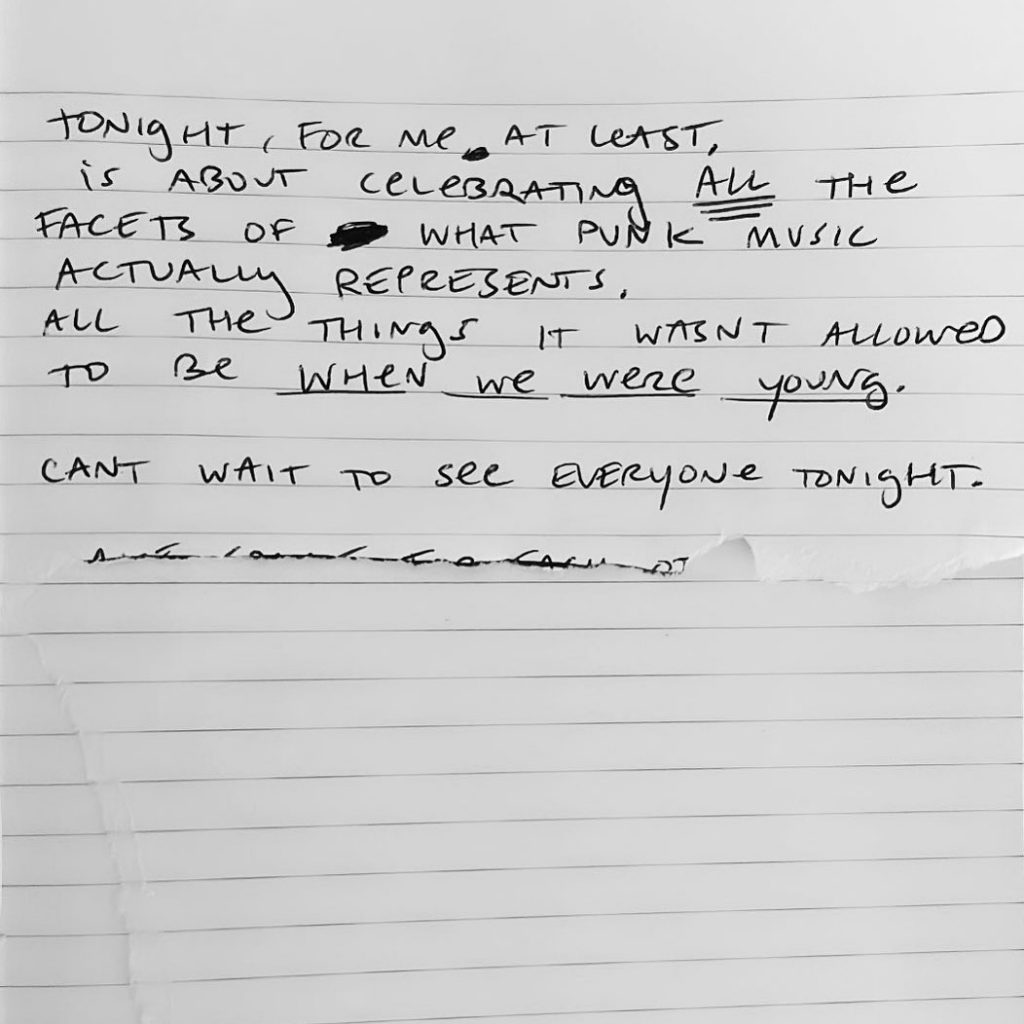 TONIGHT, FOR ME AT LEAST,
IS ABOUT CELEBRATING ALL THE
FACETS OF WHAT PUNK MUSIC
ACTUALLY REPRESENTS.
ALL THE THINGS IT WASNT ALLOWED
TO BE WHEN WE WERE YOUNG.
CANT WAIT TO SEE EVERYONE TONIGHT.